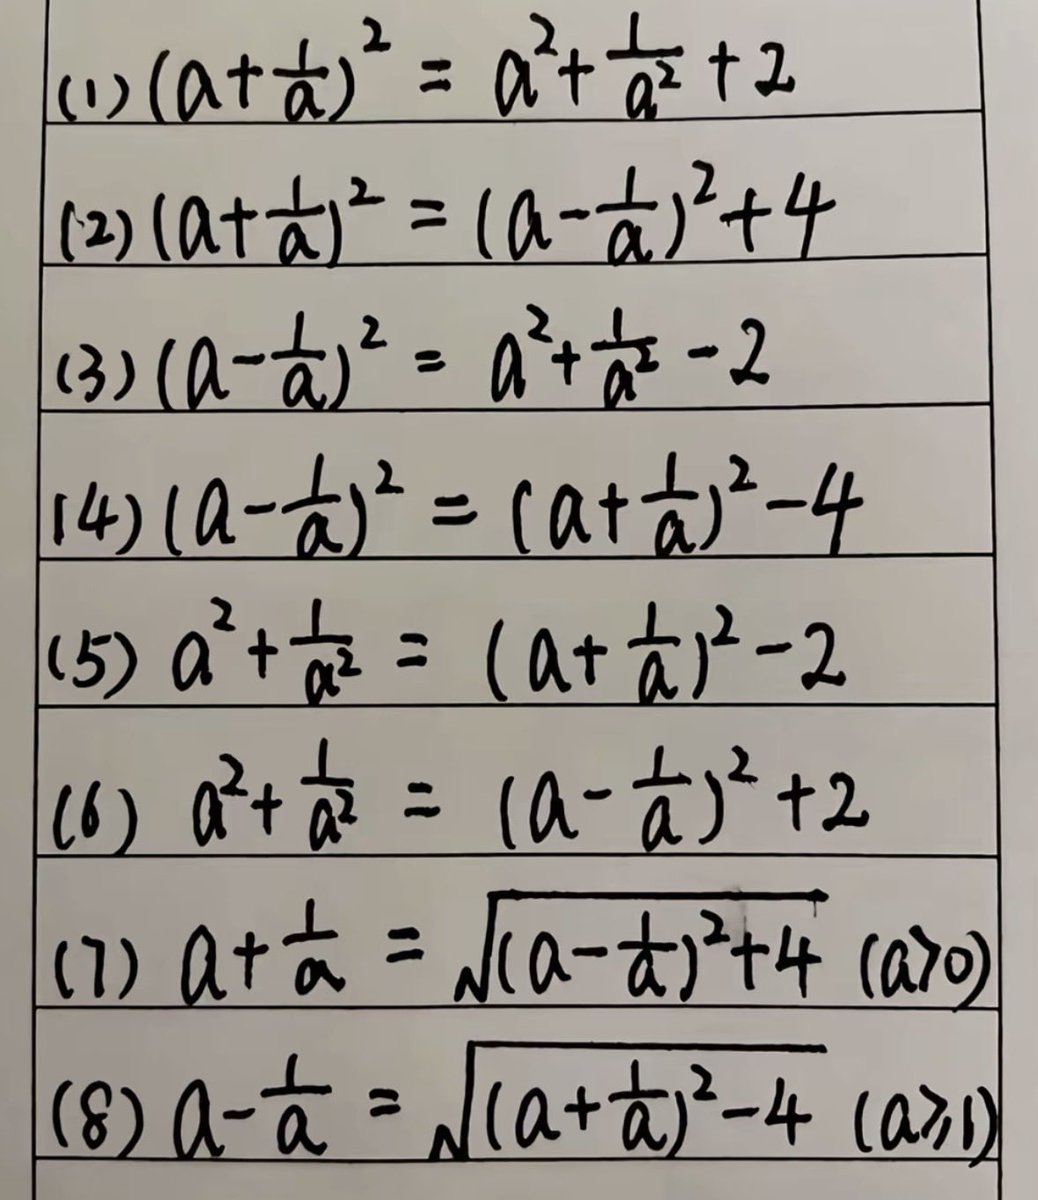 (1) (a+1/a)² = a²+1/a²+2
(2) (a+1/a)² = (a-1/a)²+4
(3) (a-1/a)² = a²+1/a²-2
(4) (a-1/a)² = (a+1/a)²-4
(5) a²+1/a² = (a+1/a)²-2
(6) a²+1/a² = (a-1/a)²+2
(7) a+1/a = √((a-1/a)²+4) (a>0)
(8) a-1/a = √((a+1/a)²-4) (a⩾1)